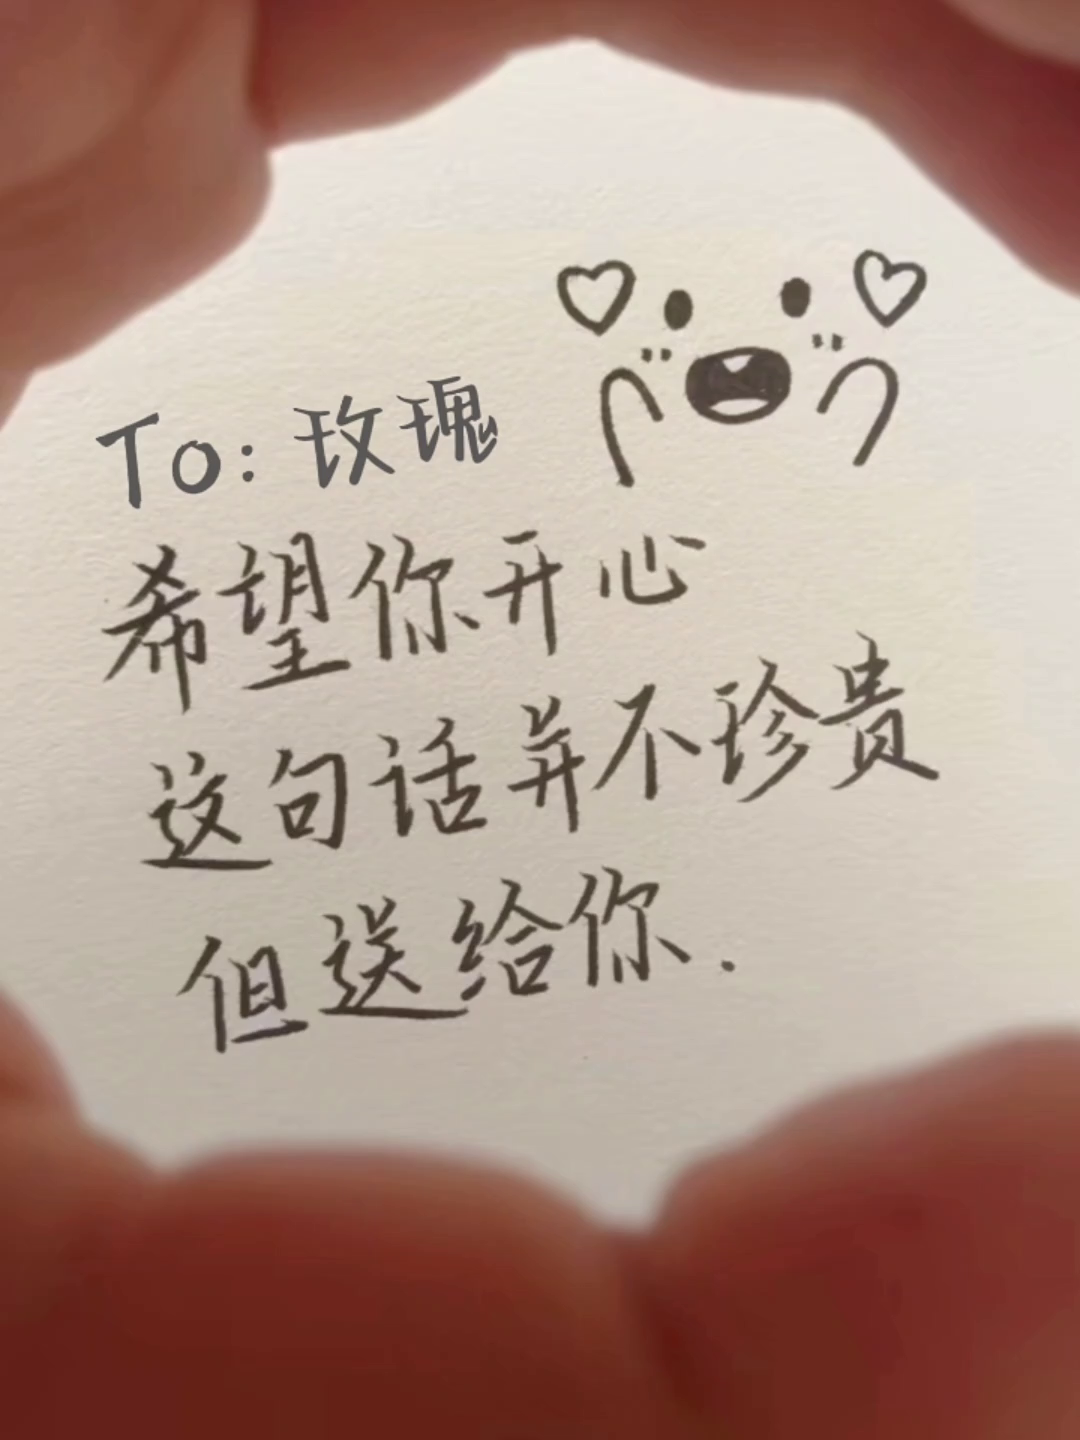 To: 玫瑰
希望你开心
这句话并不珍贵
但送给你.